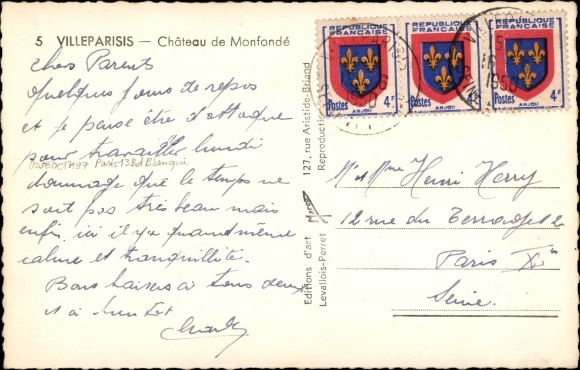 5 VILLEPARISIS — Château de Monfondé
Chers Parents
Quelques jours de repos
et je pense être d'attaque
pour travailler lundi
02 DEOCTH97 Paris 13 Bd Blanqui
dommage que le temps ne
soit pas très beau mais
enfin ici il y a quand même
calme et tranquillité.
Bons baisers à tous deux
et à bientôt
Editions d'art
Levallois-Perret
127, rue Aristide-Briand
Reproduction
REPUBLIQUE FRANÇAISE
Postes ANJOU 4F
REPUBLIQUE FRANÇAISE
Postes ANJOU
REPUBLIQUE FRANÇAISE
Postes ANJOU 4F
1950
Mr et Mme Henri Herry
12 rue du Terrage 12
Paris Xe
Seine.